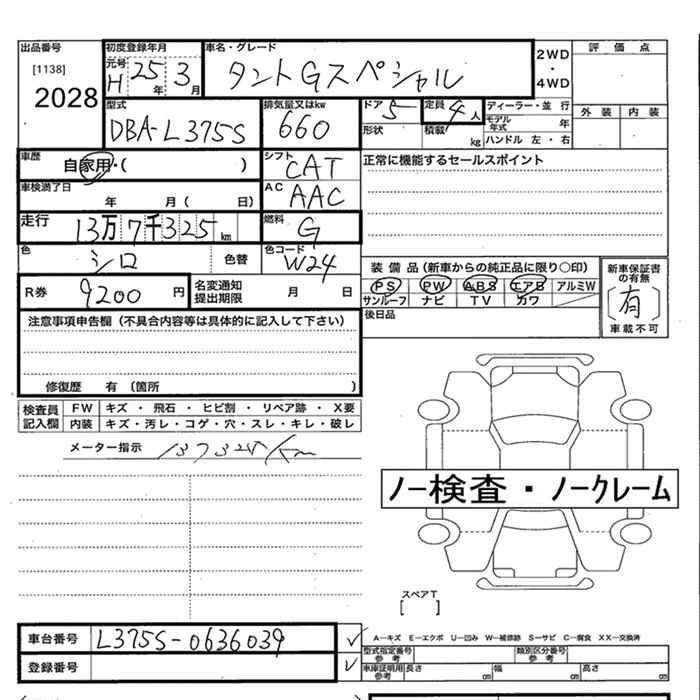 出品番号
[1138]
2028
初度登録年月
元号
H 25 年 3 月
車名・グレード
タントGスペシャル
2WD
・
4WD
評価点
外装 内装
型式
DBA-L375S
排気量又はkw
660
ドア 5
定員 4 人
形状
積載 kg
ディーラー・並行
モデル年式 年
ハンドル 左・右
車歴
自家用・( )
シフト
CAT
正常に機能するセールスポイント
車検満了日
年 月( 日)
AC
AAC
走行
13万7千325km
燃料
G
色
シロ
色替
色コード
W24
装備品(新車からの純正品に限り○印)
PS PW ABS エアB アルミW
サンルーフ ナビ TV カワ
新車保証書の有無
[有]
車載不可
R券
9200円
名変通知
提出期限
月 日
後日品
注意事項申告欄(不具合内容等は具体的に記入して下さい)
修復歴 有 〔箇所 〕
検査員
記入欄
FW キズ・飛石・ヒビ割・リペア跡・X要
内装 キズ・汚レ・コゲ・穴・スレ・キレ・破レ
メーター指示 137325km
ノー検査・ノークレーム
スペアT
[ ]
車台番号 L375S-0636039
登録番号
A-キズ E-エクボ U-凹み W-補修跡 S-サビ C-腐食 XX-交換済
型式指定番号
参考
類別区分番号
参考
車庫証明用
参考
長さ cm 幅 cm 高さ cm